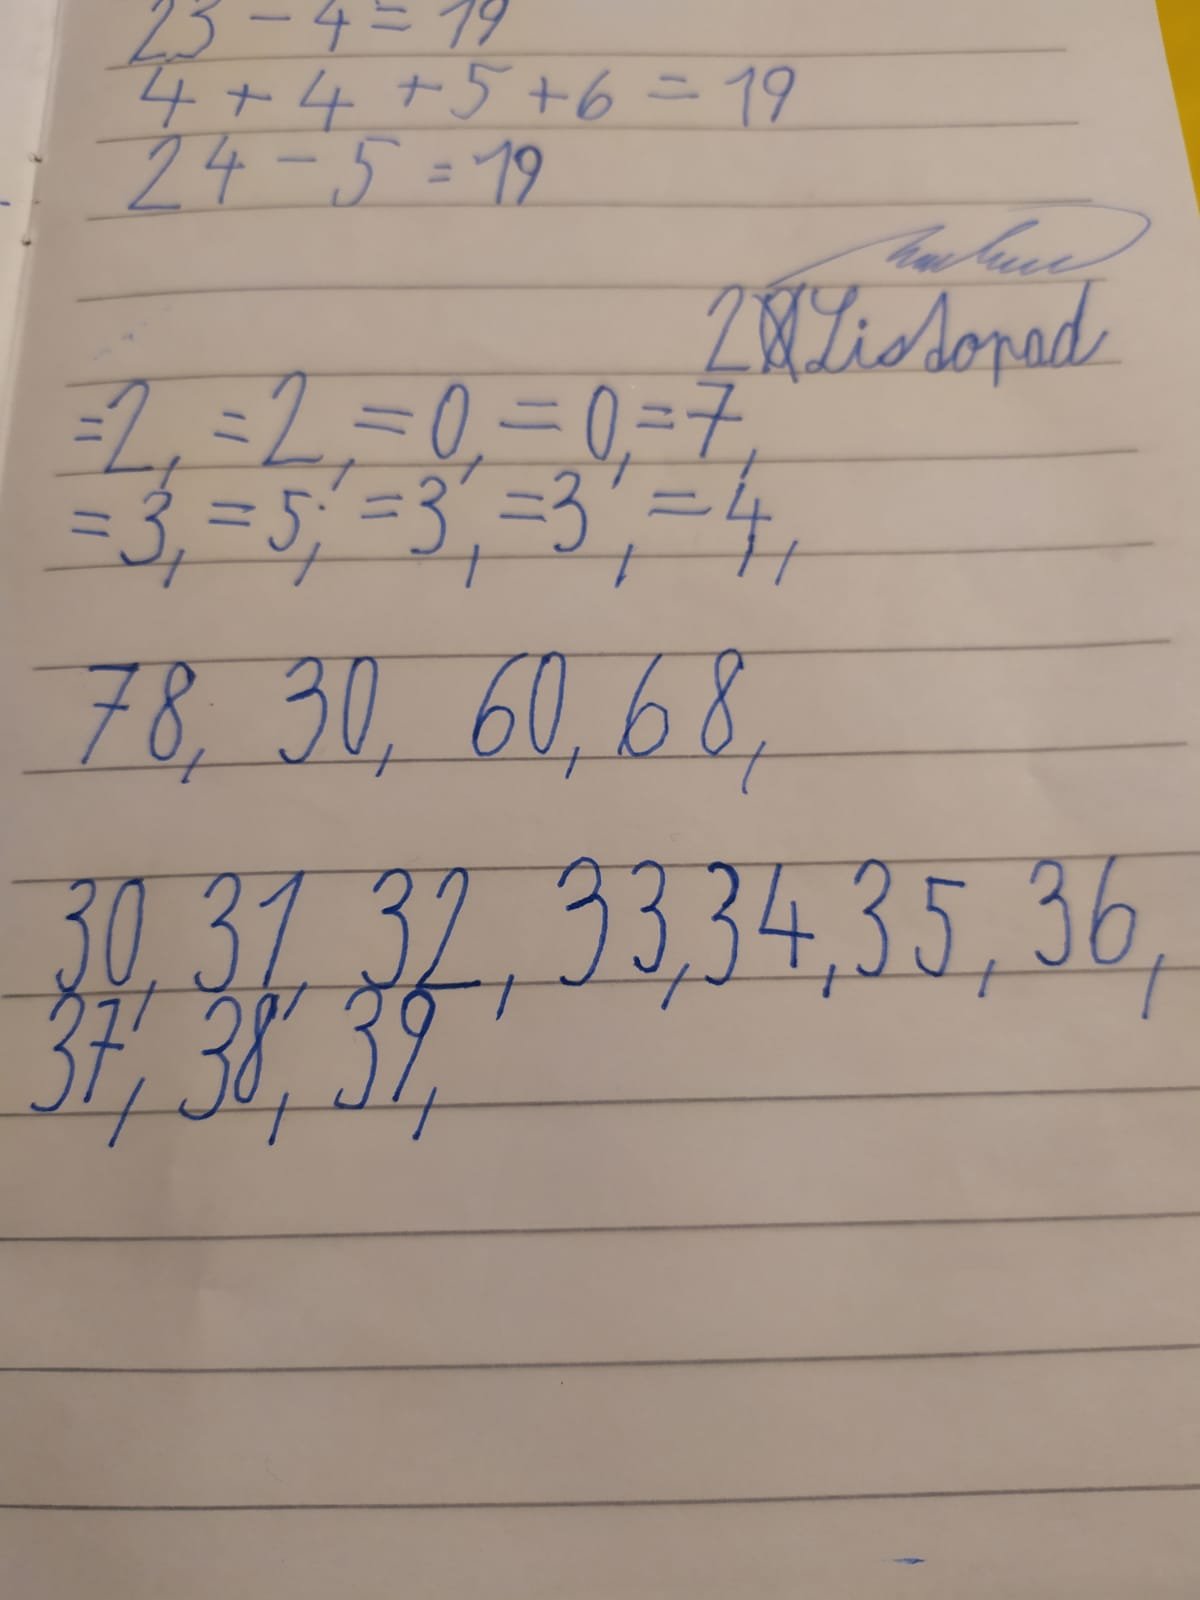 23 - 4 = 19
4 + 4 + 5 + 6 = 19
24 - 5 = 19
Listopad
=2, =2, =0, =0, =7,
=3, =5, =3, =3, =4,
78, 30, 60, 68,
30, 31, 32, 33, 34, 35, 36,
37, 38, 39,